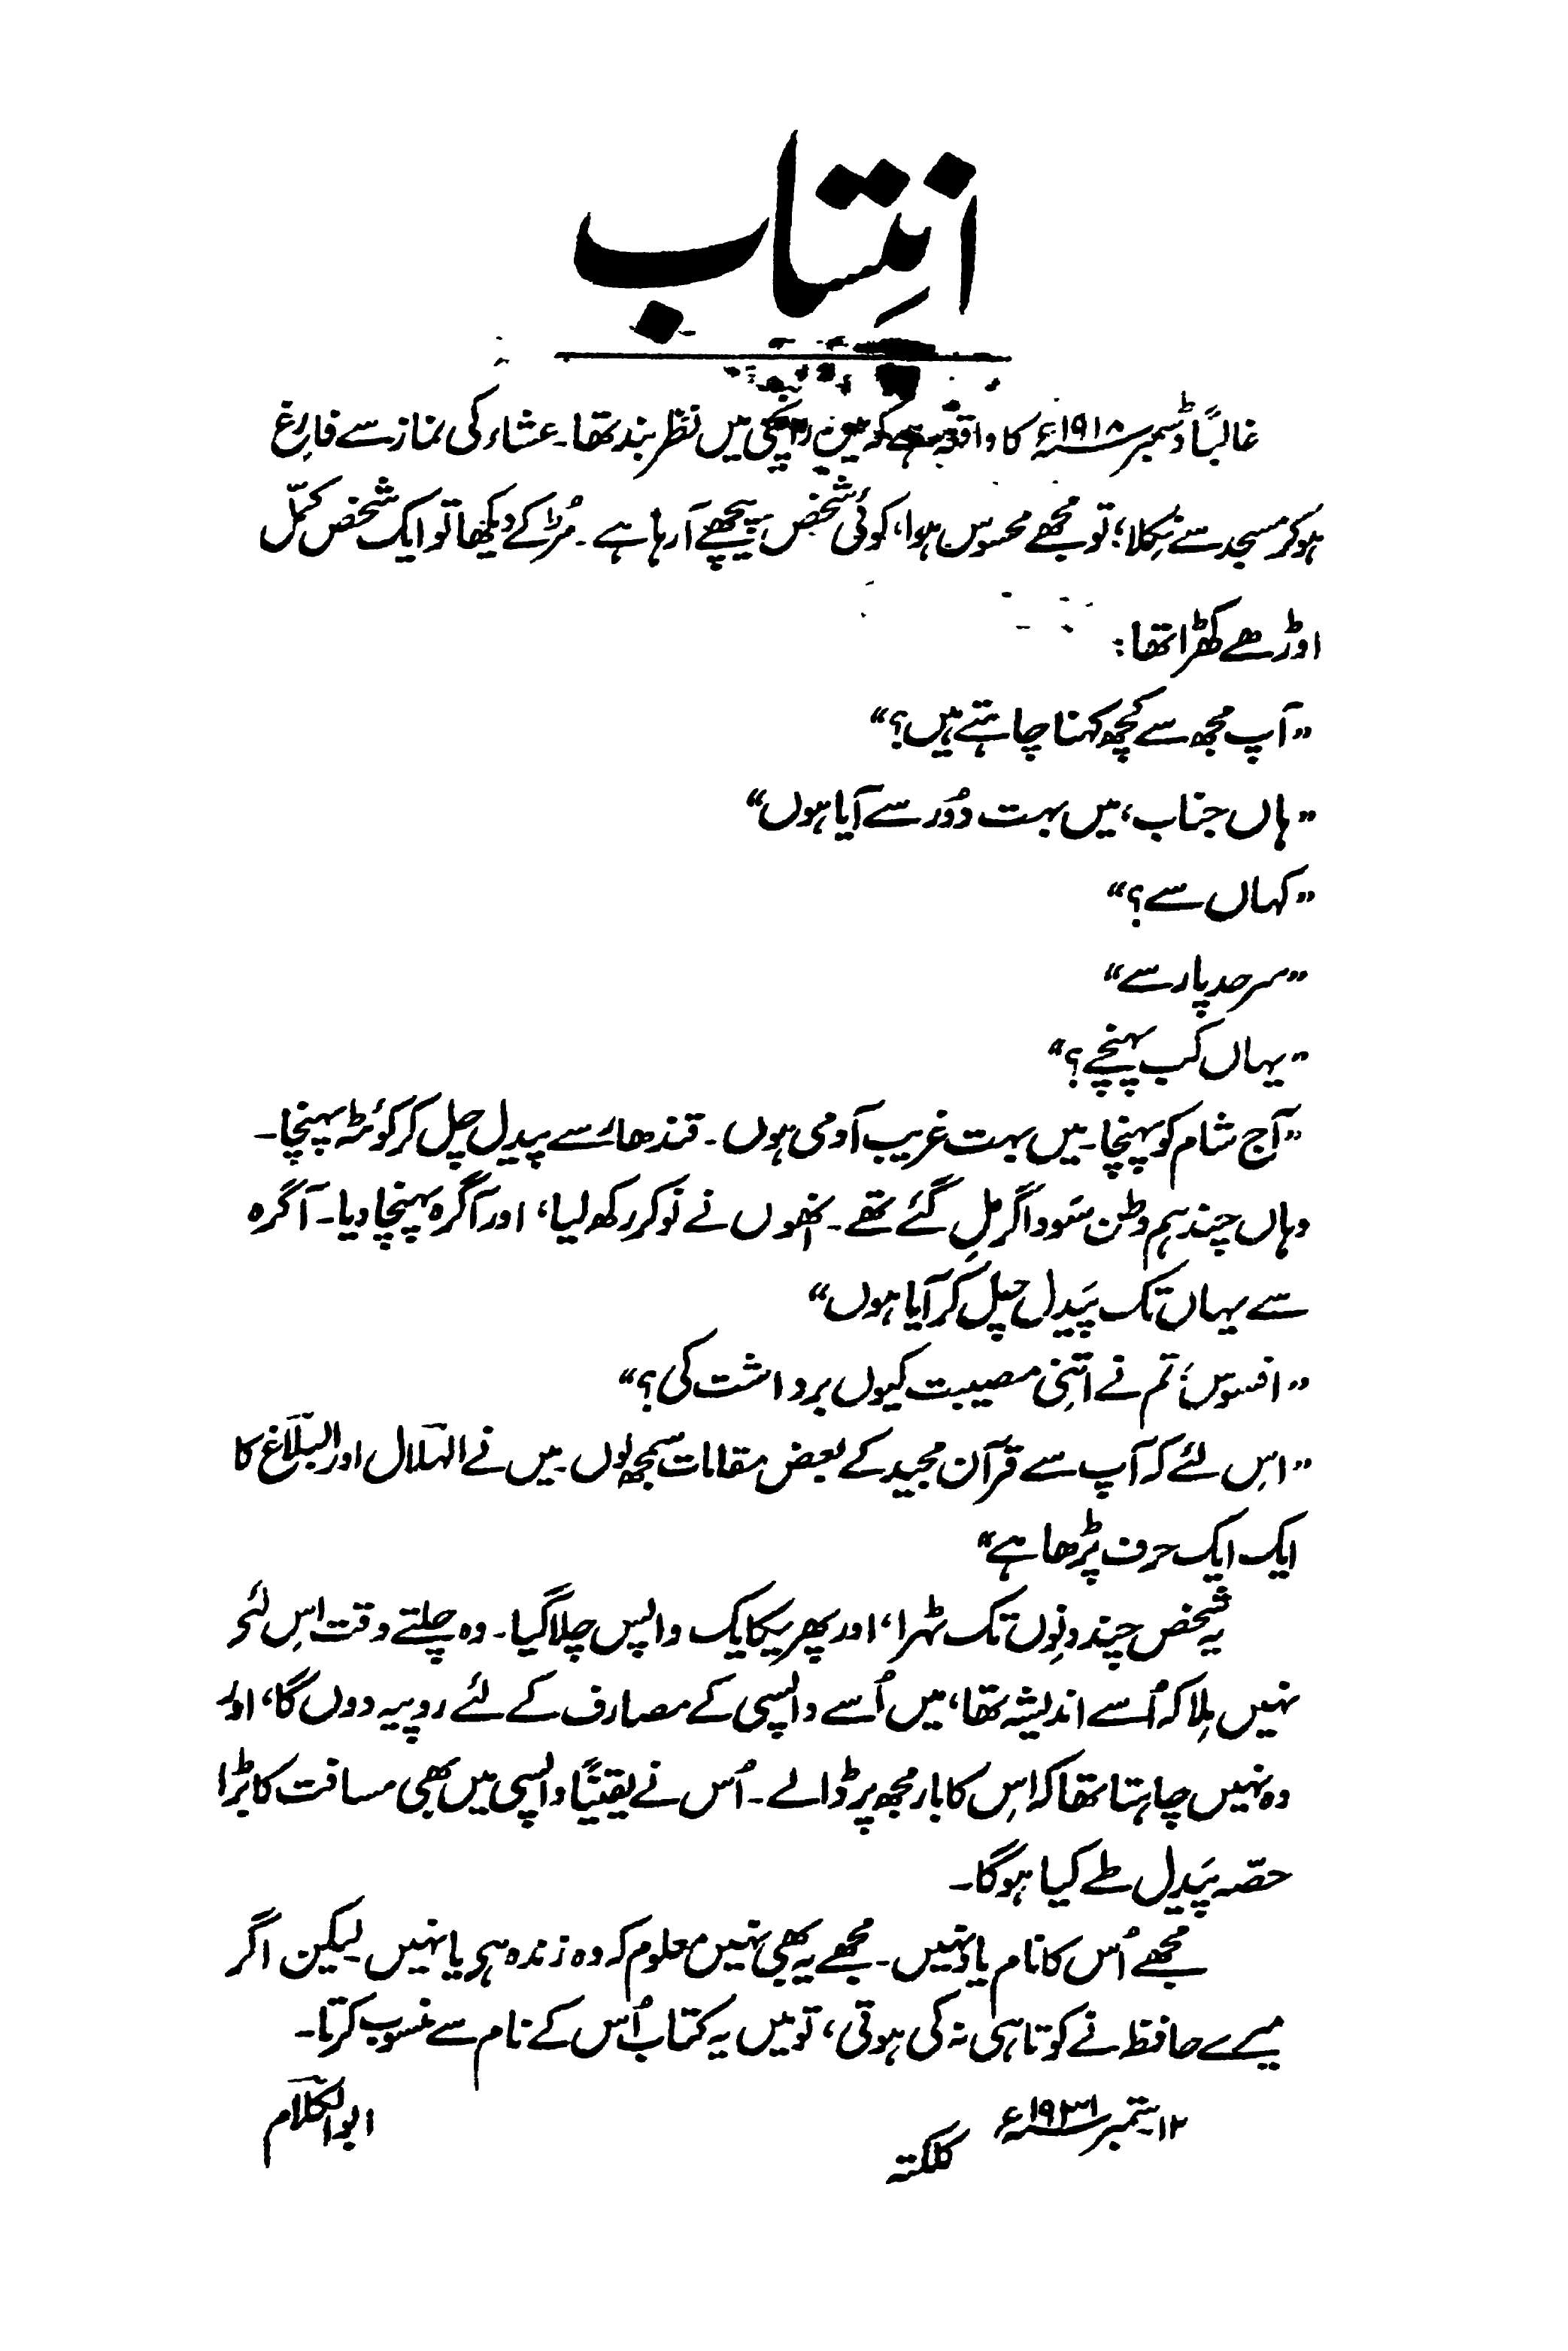 انتساب
غالباً دسمبر ۱۹۱۸ء کا واقعہ ہے کہ میں رانچی میں نظر بند تھا۔ عشاء کی نماز سے فارغ
ہو کر مسجد سے نکلا؛ تو مجھے محسوس ہوا، کوئی شخص پیچھے آ رہا ہے۔ مُڑ کے دیکھا تو ایک شخص کمّل
اوڑھے کھڑا تھا:
”آپ مجھ سے کچھ کہنا چاہتے ہیں؟“
”ہاں جناب، میں بہت دُور سے آیا ہوں“
”کہاں سے؟“
”سرحد پار سے“
”یہاں کب پہنچے؟“
”آج شام کو پہنچا۔ میں بہت غریب آدمی ہوں۔ قندھار سے پیدل چل کر کوئٹہ پہنچا۔
وہاں چند ہم وطن سَوداگر مِل گئے تھے۔ انھوں نے نوکر رکھ لیا، اور آگرہ پہنچا دیا۔ آگرہ
سے یہاں تک پَیدل چل کر آیا ہوں“
”افسوس؛ تم نے اتنی مصیبت کیوں برداشت کی؟“
”اِس لئے کہ آپ سے قرآن مجید کے بعض مقامات سمجھ لوں۔ میں نے الہلال اور البلاغ کا
ایک ایک حرف پڑھا ہے“
یہ شخص چند دِنوں تک ٹہرا، اور پھر یکایک واپس چلا گیا۔ وہ چلتے وقت اِس لئے
نہیں مِلا کہ اُسے اندیشہ تھا، میں اُسے واپسی کے مصارف کے لئے روپیہ دوں گا، اور
وہ نہیں چاہتا تھا کہ اِس کا بار مجھ پر ڈالے۔ اُس نے یقیناً واپسی میں بھی مسافت کا بڑا
حصّہ پَیدل طے کیا ہو گا۔
مجھے اُس کا نام یاد نہیں۔ مجھے یہ بھی نہیں معلوم کہ وہ زندہ ہی یا نہیں۔ لیکن اگر
میرے حافظ نے کوتاہی نہ کی ہوتی، تو میں یہ کتاب اُس کے نام سے منسوب کرتا۔
۱۲ ستمبر ۱۹۳۱ء
کلکتہ
ابوالکلام